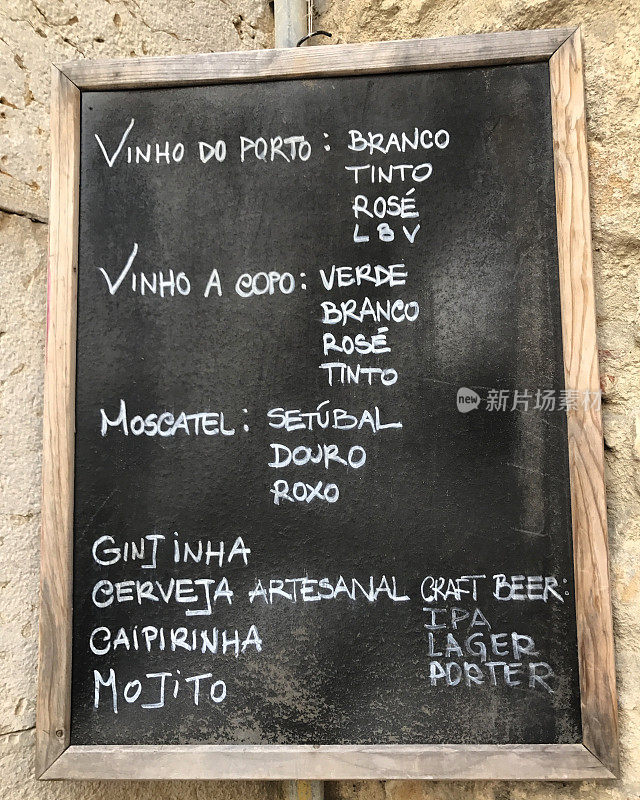 VINHO DO PORTO : BRANCO
TINTO
ROSÉ
LBV
VINHO A COPO : VERDE
BRANCO
ROSÉ
TINTO
MOSCATEL : SETÚBAL
DOURO
ROXO
GINJINHA
CERVEJA ARTESANAL CRAFT BEER:
IPA
CAIPIRINHA LAGER
MOJITO PORTER
new 新中域在线